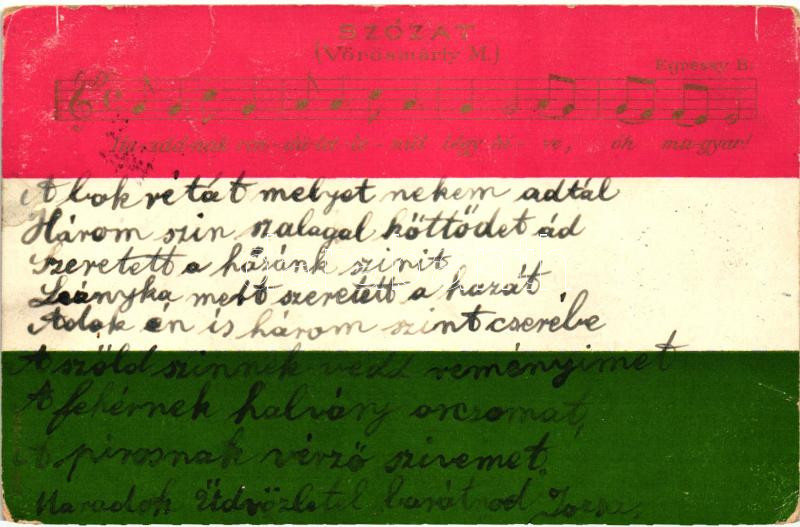 SZÓZAT
(Vörösmárty M.)
Egressy B.
Ha-zád-nak ren-dü-let-le-nül légy hí-ve, oh ma-gyar!
A bokrétát melyet nekem adtál
Három szin szalagal köttödet ád
Szeretett a házánk szinit
Leányka mert szeretett a hazát
Adok én is három szint cserébe
A szöld szinnek vedd reményimet
A fehérnek halvány orczomat,
A pirosnak vérző szivemet,
Maradok Üdvözletel barátnod